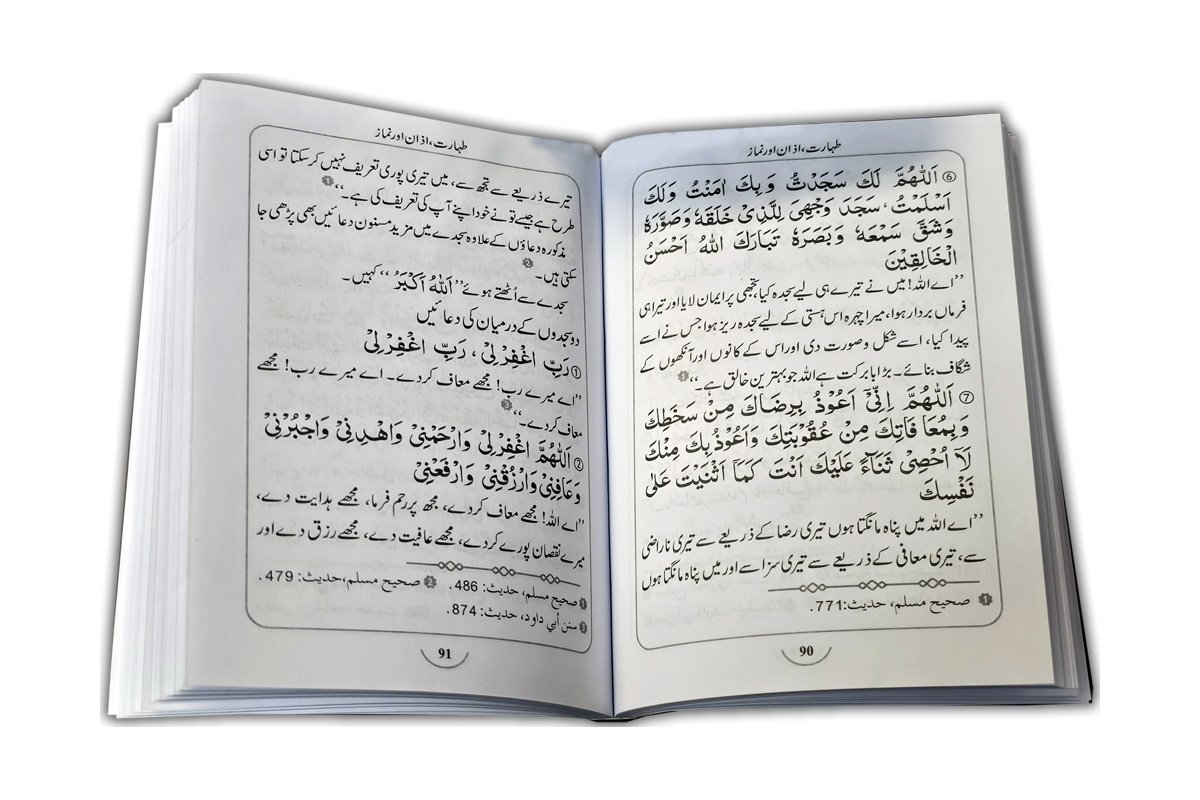 طہارت، اذان اور نماز
⑥ اَللّٰهُمَّ لَكَ سَجَدْتُّ وَ بِكَ اٰمَنْتُ وَ لَكَ
اَسْلَمْتُ، سَجَدَ وَجْهِيَ لِلَّذِيْ خَلَقَهٗ وَصَوَّرَهٗ
وَشَقَّ سَمْعَهٗ وَ بَصَرَهٗ تَبَارَكَ اللّٰهُ اَحْسَنُ
الْخَالِقِيْنَ
”اے اللہ! میں نے تیرے ہی لیے سجدہ کیا، تجھی پر ایمان لایا اور تیرا ہی
فرماں بردار ہوا، میرا چہرہ اس ہستی کے لیے سجدہ ریز ہوا جس نے اسے
پیدا کیا، اسے شکل وصورت دی اور اس کے کانوں اور آنکھوں کے
شگاف بنائے۔ بڑا بابرکت ہے اللہ جو بہترین خالق ہے۔“ ❶
⑦ اَللّٰهُمَّ اِنِّيْٓ اَعُوْذُ بِرِضَاكَ مِنْ سَخَطِكَ
وَ بِمُعَا فَاتِكَ مِنْ عُقُوْبَتِكَ وَاَعُوْذُ بِكَ مِنْكَ
لَآ اُحْصِيْ ثَنَآءً عَلَيْكَ اَنْتَ كَمَآ اَثْنَيْتَ عَلٰى
نَفْسِكَ
”اے اللہ میں پناہ مانگتا ہوں تیری رضا کے ذریعے سے تیری ناراضی
سے، تیری معافی کے ذریعے سے تیری سزا سے اور میں پناہ مانگتا ہوں
❶ صحيح مسلم، حديث: 771.
90
طہارت، اذان اور نماز
تیرے ذریعے سے تجھ سے، میں تیری پوری تعریف نہیں کر سکتا تو اسی
طرح ہے جیسے تو نے خود اپنے آپ کی تعریف کی ہے۔“ ❶
مذکورہ دعاؤں کے علاوہ سجدے میں مزید مسنون دعائیں بھی پڑھی جا
سکتی ہیں۔ ❷
سجدے سے اُٹھتے ہوئے ”اَللّٰهُ اَكْبَرُ“ کہیں۔
دو سجدوں کے درمیان کی دعائیں
① رَبِّ اغْفِرْلِيْ، رَبِّ اغْفِرْلِيْ
”اے میرے رب! مجھے معاف کردے۔ اے میرے رب! مجھے
معاف کردے۔“ ❸
② اَللّٰهُمَّ اغْفِرْلِيْ وَارْحَمْنِيْ وَاهْدِنِيْ وَاجْبُرْنِيْ
وَعَافِنِيْ وَارْزُقْنِيْ وَارْفَعْنِيْ
”اے اللہ! مجھے معاف کردے، مجھ پر رحم فرما، مجھے ہدایت دے،
میرے نقصان پورے کردے، مجھے عافیت دے، مجھے رزق دے اور
❶ صحيح مسلم، حديث: 486. ❷ صحيح مسلم، حديث: 479.
❸ سنن أبي داود، حديث: 874.
91